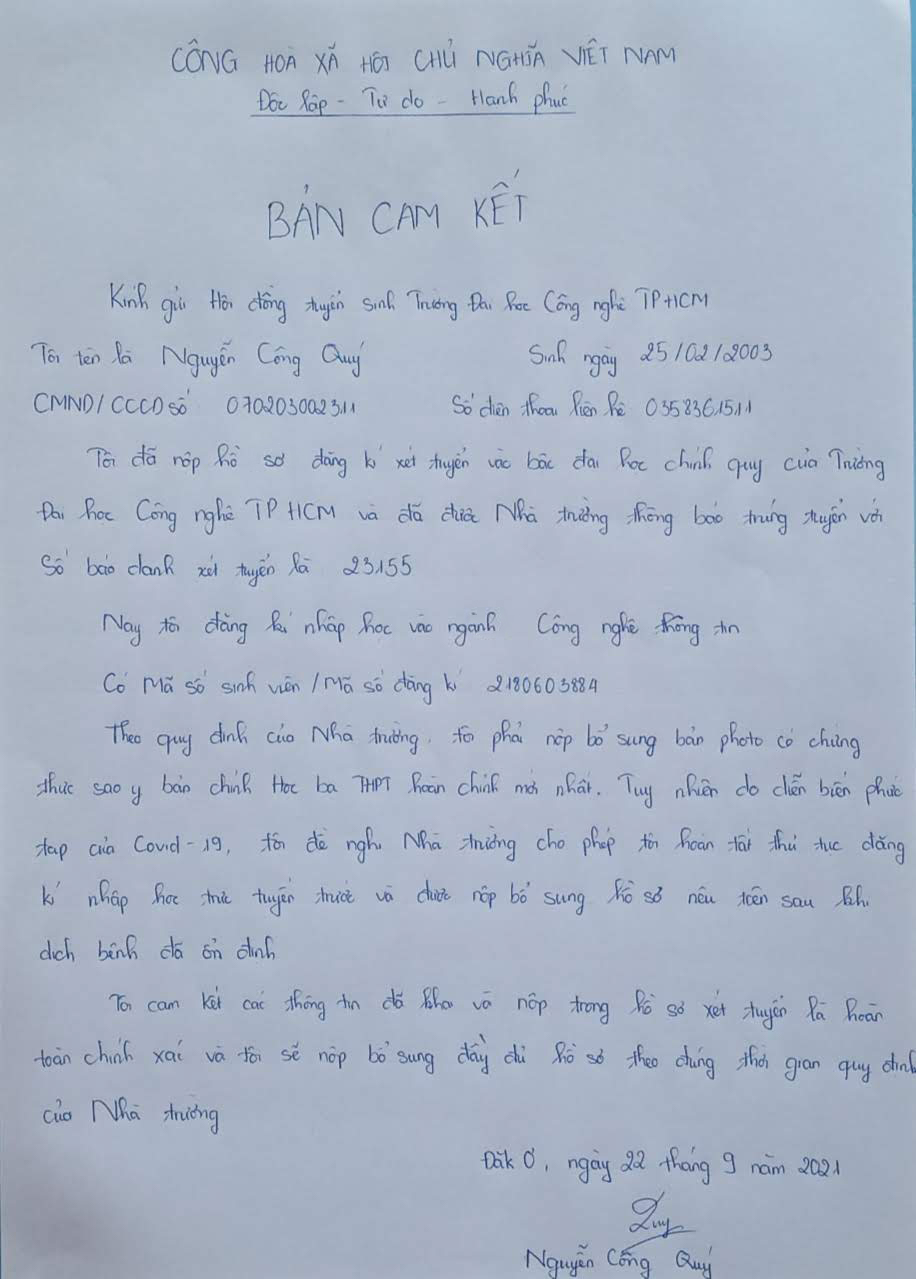 CÔNG HOÀ XÃ HỘI CHỦ NGHĨA VIỆT NAM
Độc lập - Tự do - Hạnh phúc
BẢN CAM KẾT
Kính gửi Hội đồng tuyển sinh Trường Đại học Công nghệ TPHCM
Tôi tên là Nguyễn Công Quý Sinh ngày 25/02/2003
CMND/CCCD số 070203002311 Số điện thoại liên hệ 0358361511
Tôi đã nộp hồ sơ đăng kí xét tuyển vào bậc đại học chính quy của Trường
Đại học Công nghệ TPHCM và đã được Nhà trường thông báo trúng tuyển với
Số báo danh xét tuyển là 23155
Nay tôi đăng kí nhập học vào ngành Công nghệ thông tin
Có Mã số sinh viên / Mã số đăng kí 2180603884
Theo quy định của Nhà trường, tôi phải nộp bổ sung bản photo có chứng
thực sao y bản chính Học bạ THPT hoàn chỉnh mới nhất. Tuy nhiên do diễn biến phức
tạp của Covid-19, tôi đề nghị Nhà trường cho phép tôi hoàn tất thủ tục đăng
kí nhập học trực tuyến trước và được nộp bổ sung hồ sơ nêu trên sau khi
dịch bệnh đã ổn định
Tôi cam kết các thông tin đã khai và nộp trong hồ sơ xét tuyển là hoàn
toàn chính xác và tôi sẽ nộp bổ sung đầy đủ hồ sơ theo đúng thời gian quy định
của Nhà trường
Đăk Ơ, ngày 22 tháng 9 năm 2021
Quý
Nguyễn Công Quý